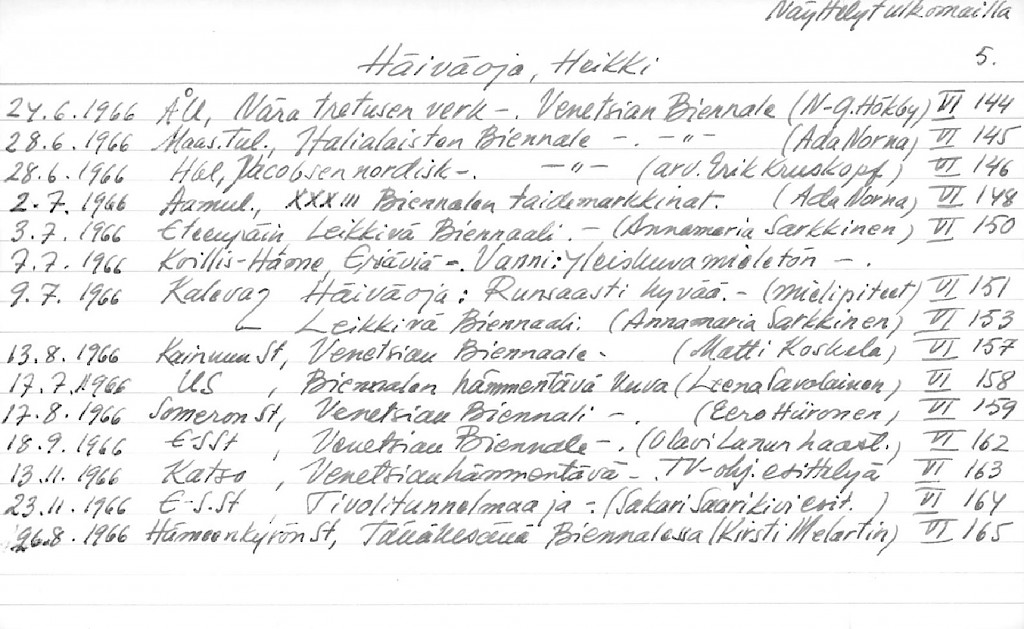 Näyttelyt ulkomailla
5.
Häiväoja, Heikki
24.6.1966 ÅU, Nära tretusen verk -. Venetsian Biennale (N-G. Hökby) VI 144
28.6.1966 Maas.Tul., Italialaisten Biennale -. -"- (Ada Norna) VI 145
28.6.1966 Hbl, Jacobsen nordisk -. -"- (arv. Erik Kruskopf) VI 146
2.7.1966 Aamul., XXXIII Biennalen taidemarkkinat. (Ada Norna) VI 148
3.7.1966 Eteenpäin Leikkivä Biennaali. - (Annamaria Sarkkinen) VI 150
7.7.1966 Koillis-Häme, Eräviä -. Vanni: yleiskuva mieletön -.
9.7.1966 Kaleva Häiväoja: Runsaasti hyvää. - (mielipiteet) VI 151
Leikkivä Biennaali. (Annamaria Sarkkinen) VI 153
13.8.1966 Kainuun St, Venetsian Biennaale - (Matti Koskela) VI 157
17.7.1966 US, Biennalen hämmentävä kuva (Leena Savolainen) VI 158
17.8.1966 Someron St, Venetsian Biennali - (Eero Hiironen) VI 159
18.9.1966 E-SSt, Venetsian Biennale -. (Olavi Lanun haast.) VI 162
13.11.1966 Katso, Venetsian hämmentävä -. TV-ohj. esittelyä VI 163
23.11.1966 E-S.St, Tivolitunnelmaa ja - (Sakari Saarikivi esit.) VI 164
26.8.1966 Hämeenkyrön St, Tänä kesänä Biennalessa (Kirsti Melartin) VI 165